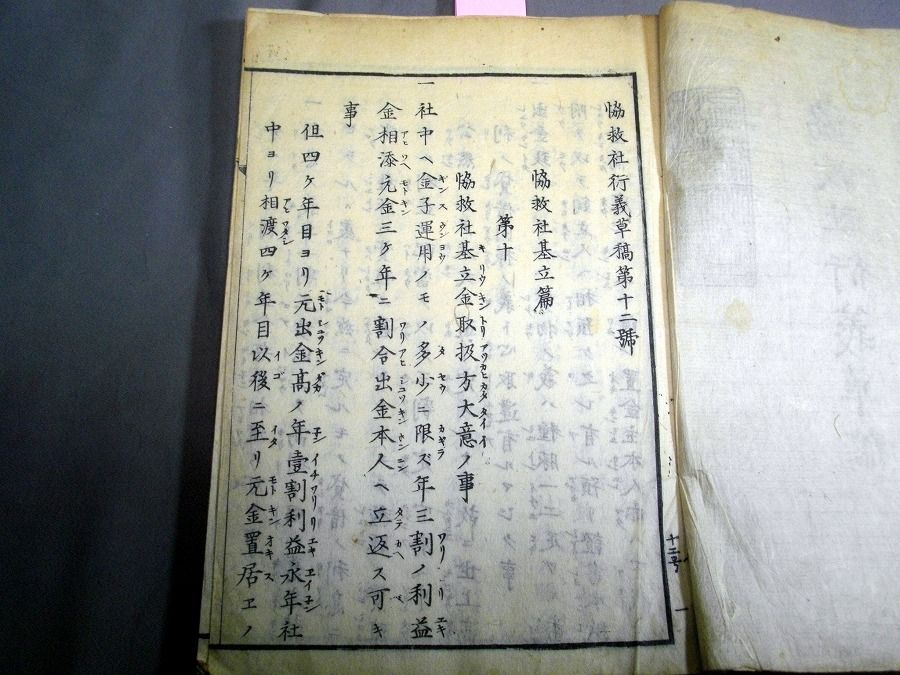 協救社衍義草稿第十二號
協救社基立篇
第十
協救社基立金取扱方大意ノ事
一社中ヘ金子運用ノモノ多少ニ限ズ年三割ノ利益
金相添元金三ケ年ニ割合出金本人ヘ立返ス可キ
事
但四ケ年目ヨリ元出金高ノ年壹割利益永年社
中ヨリ相渡四ケ年目以後ニ至リ元金置居ヱノ
十二号
一